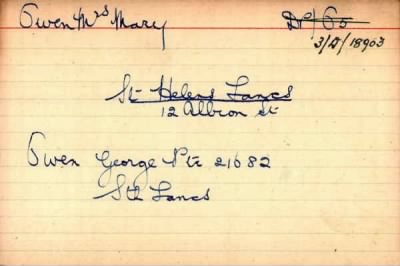 Owen Mrs Mary
DP/65
3/D/18903
St Helens Lancs
12 Albion st
Owen George Pte 21682
Sth Lancs